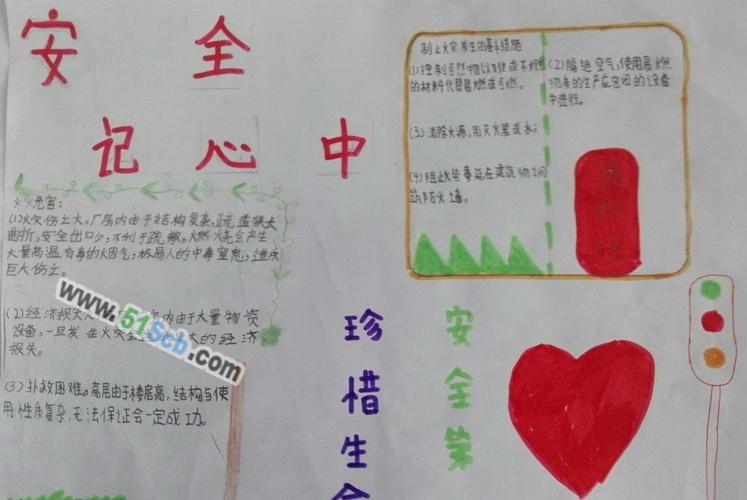 安全
记心中
火灾危害:
(1)火灾伤亡大。厂房内由于结构复杂,疏道狭太
曲折,安全出口少,不利于疏散。燃烧会产生
大量高温有毒的烟气,极易人的中毒窒息,造成
巨大伤亡。
(2)经济损失 内由于大量物资
设备,一旦发生火灾 大的经济
损失。
(3)扑救困难。高层由于楼房高,结构与使
用性质复杂,无法保证会一定成功。
www.51Scb.com
制止火灾发生的基本措施
(1)控制可然物以难燃或不燃
的材料代替易燃或可燃。
(2)隔绝空气,使用易燃
物质的生产应密闭的设备
中进行。
(3)消除火源,用灭火器或水;
(4)阻止火势蔓延在建筑物之间
筑防火墙。
珍惜生命
安全第